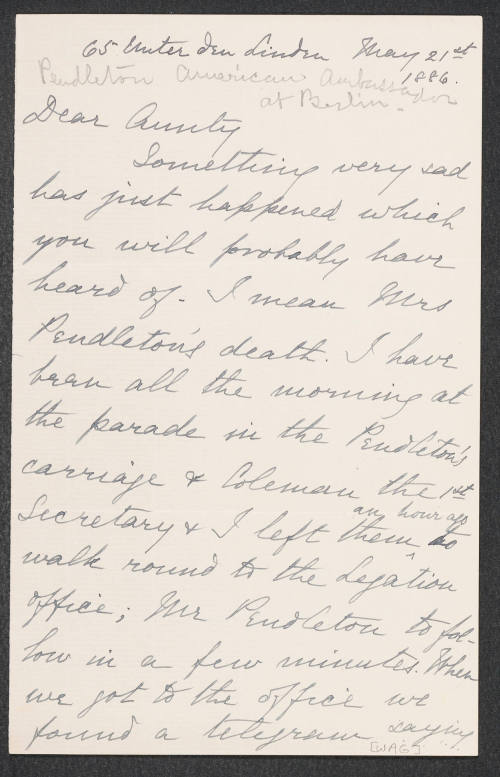 65 Unter den Linden May 21st
1886.
Pendleton American Ambassador
at Berlin.
Dear Aunty
Something very sad
has just happened which
you will probably have
heard of - I mean Mrs
Pendleton's death. I have
been all the morning at
the parade in the Pendleton's
carriage & Coleman the 1st
Secretary & I left them an hour ago to
walk round to the Legation
office; Mr Pendleton to fol-
low in a few minutes. When
we got to the office we
found a telegram saying
[WAG]